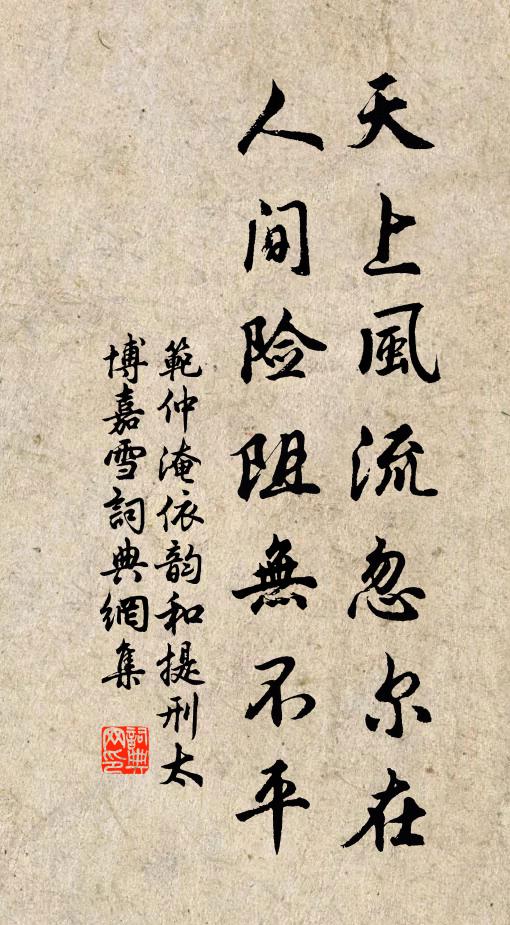 天上風流忽尔在
人间险阻無不平
範仲淹依韵和提刑太
博嘉雪詞典網集
詞典
网印